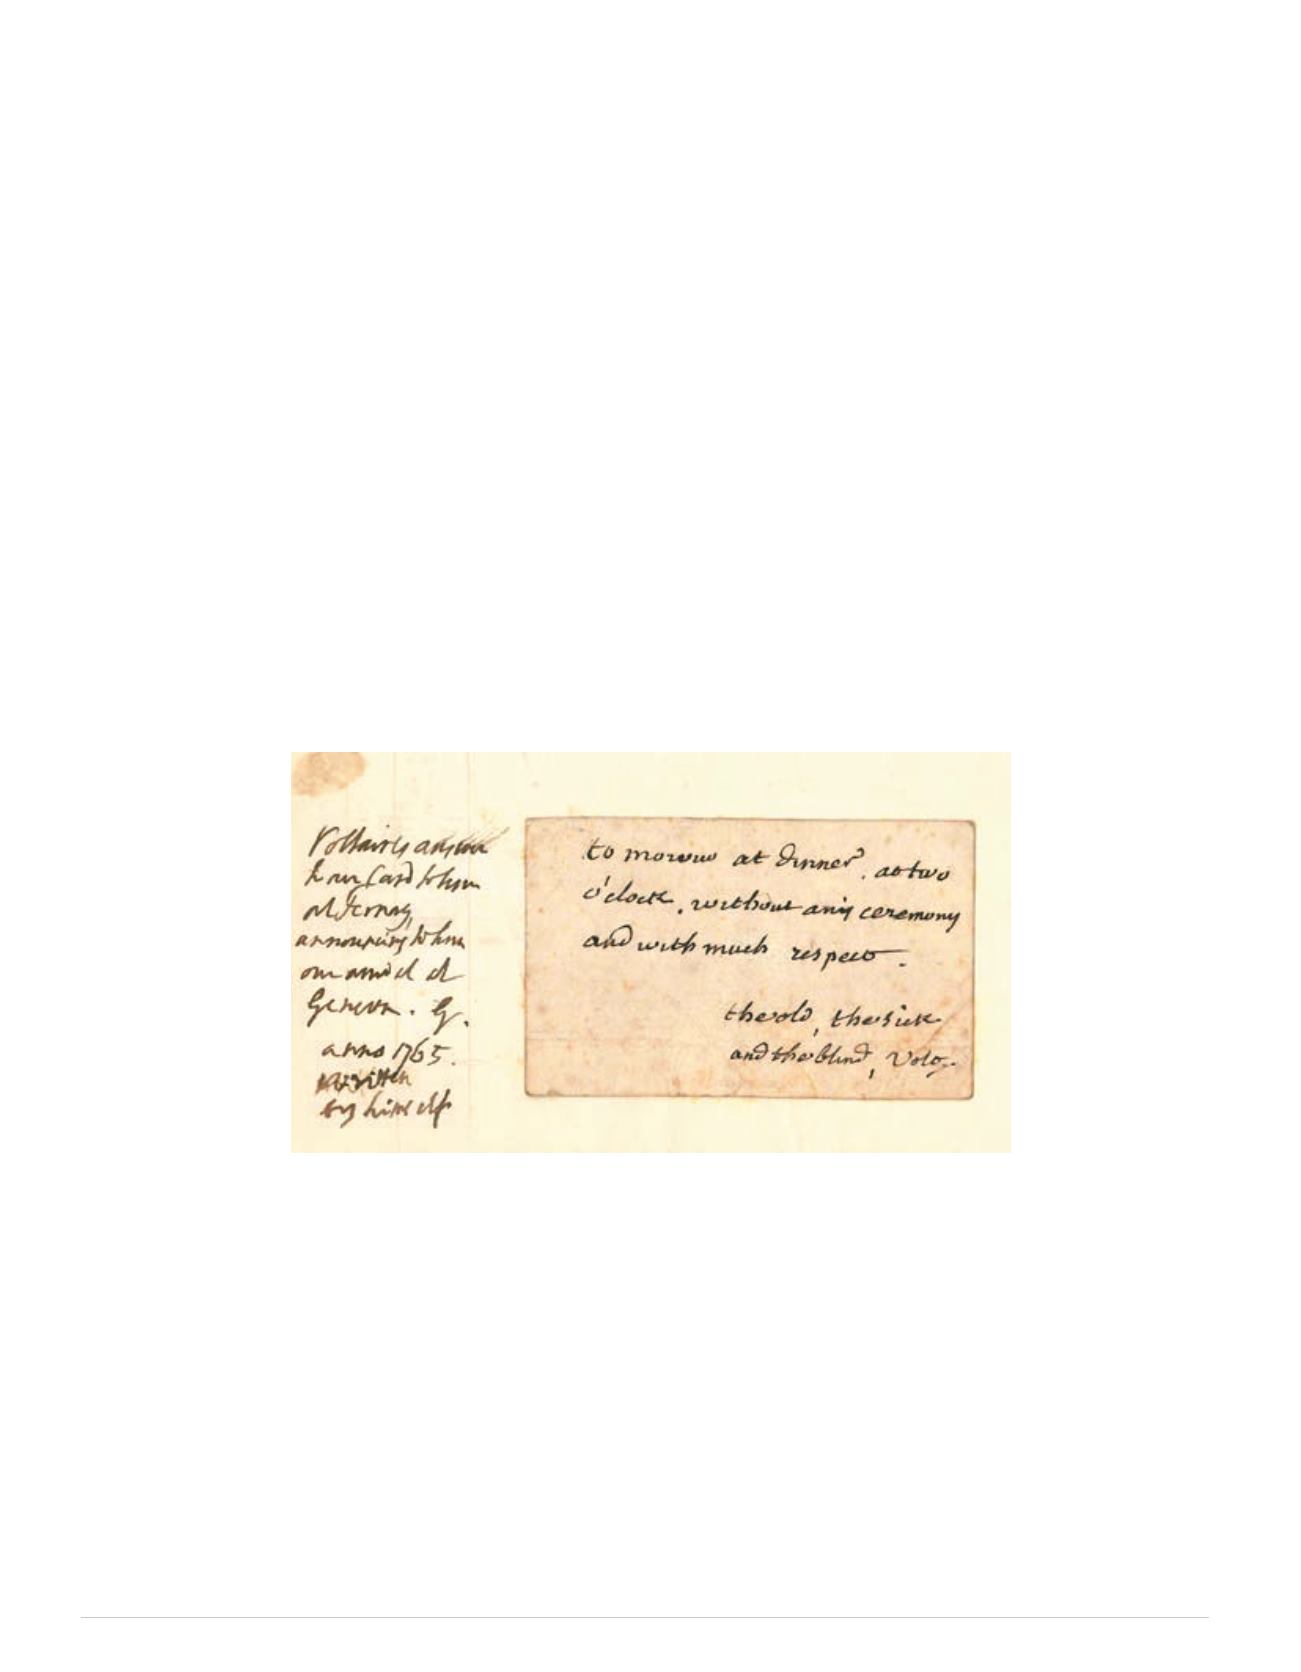 Voltaire's answer
to our Card to him
at Fernay,
announcing to him
our arrival at
Geneva. G.
anno 1765.
written
by himself
to morow at dinner, at two
o'clock, without any ceremony
and with much respect.
the old, the sick
and the blind, Volt